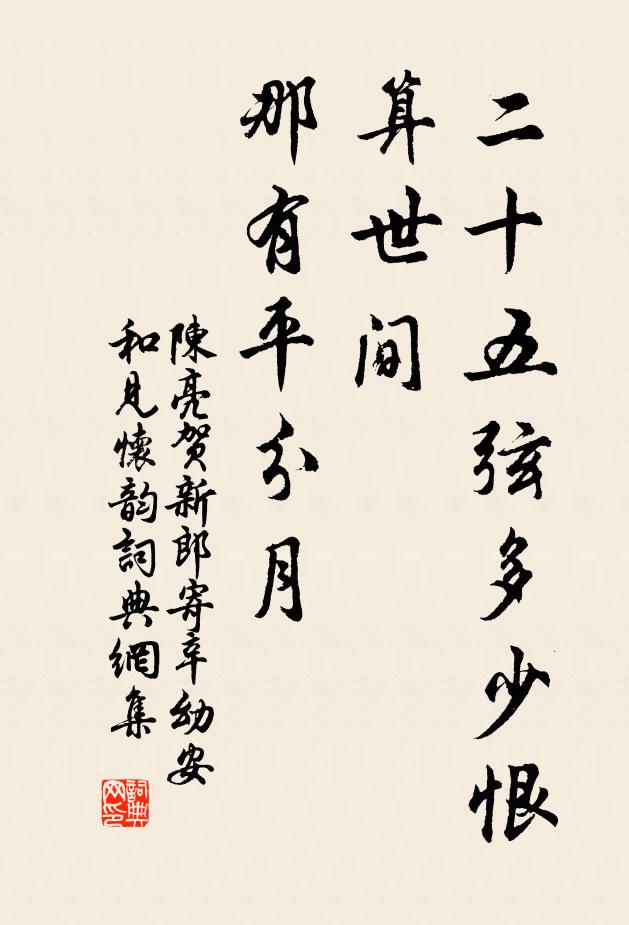 二十五弦多少恨
算世间
那有平分月
陳亮賀新郎寄辛幼安
和見懷韵詞典網集
詞典
网印